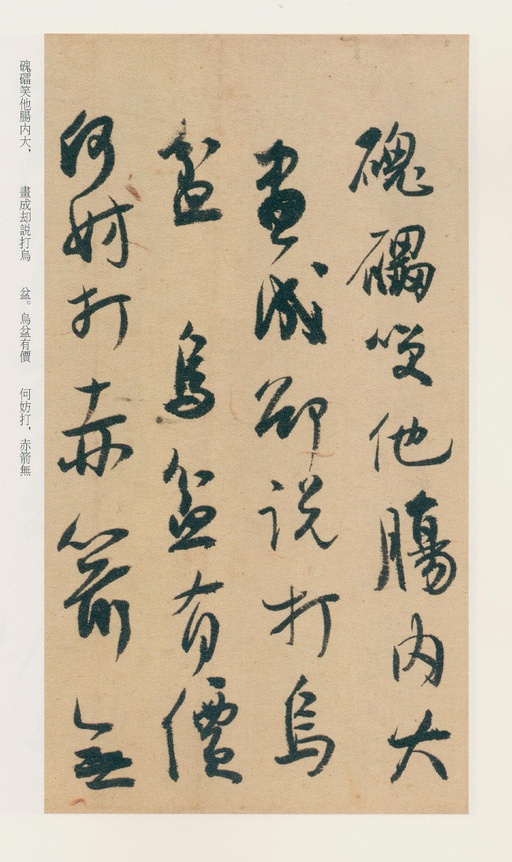 磈礧笑他腸内大
畫成却説打烏
盆烏盆有價
何妨打赤箭無
磈礧笑他腸内大，畫成却説打烏盆。烏盆有價何妨打，赤箭無